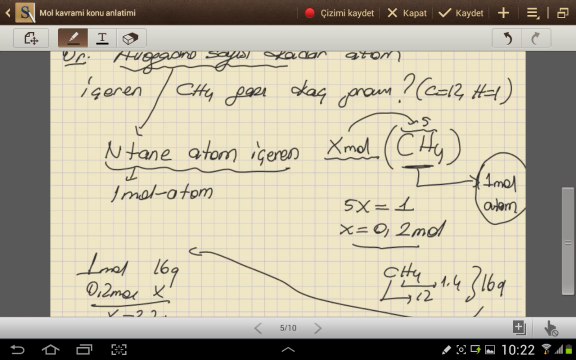 Mol kavrami konu anlatimi
Çizimi kaydet
Kapat
Kaydet
T
Or: Avogadro sayısı kadar atom
içeren CH4 gazı kaç gram? (C=12, H=1)
5
N tane atom içeren
Xmol (CH4)
1mol-atom
1mol
atom
5X = 1
X = 0,2mol
1mol 16g
0,2mol X
CH4
1.4
12
16g
5/10
10:22